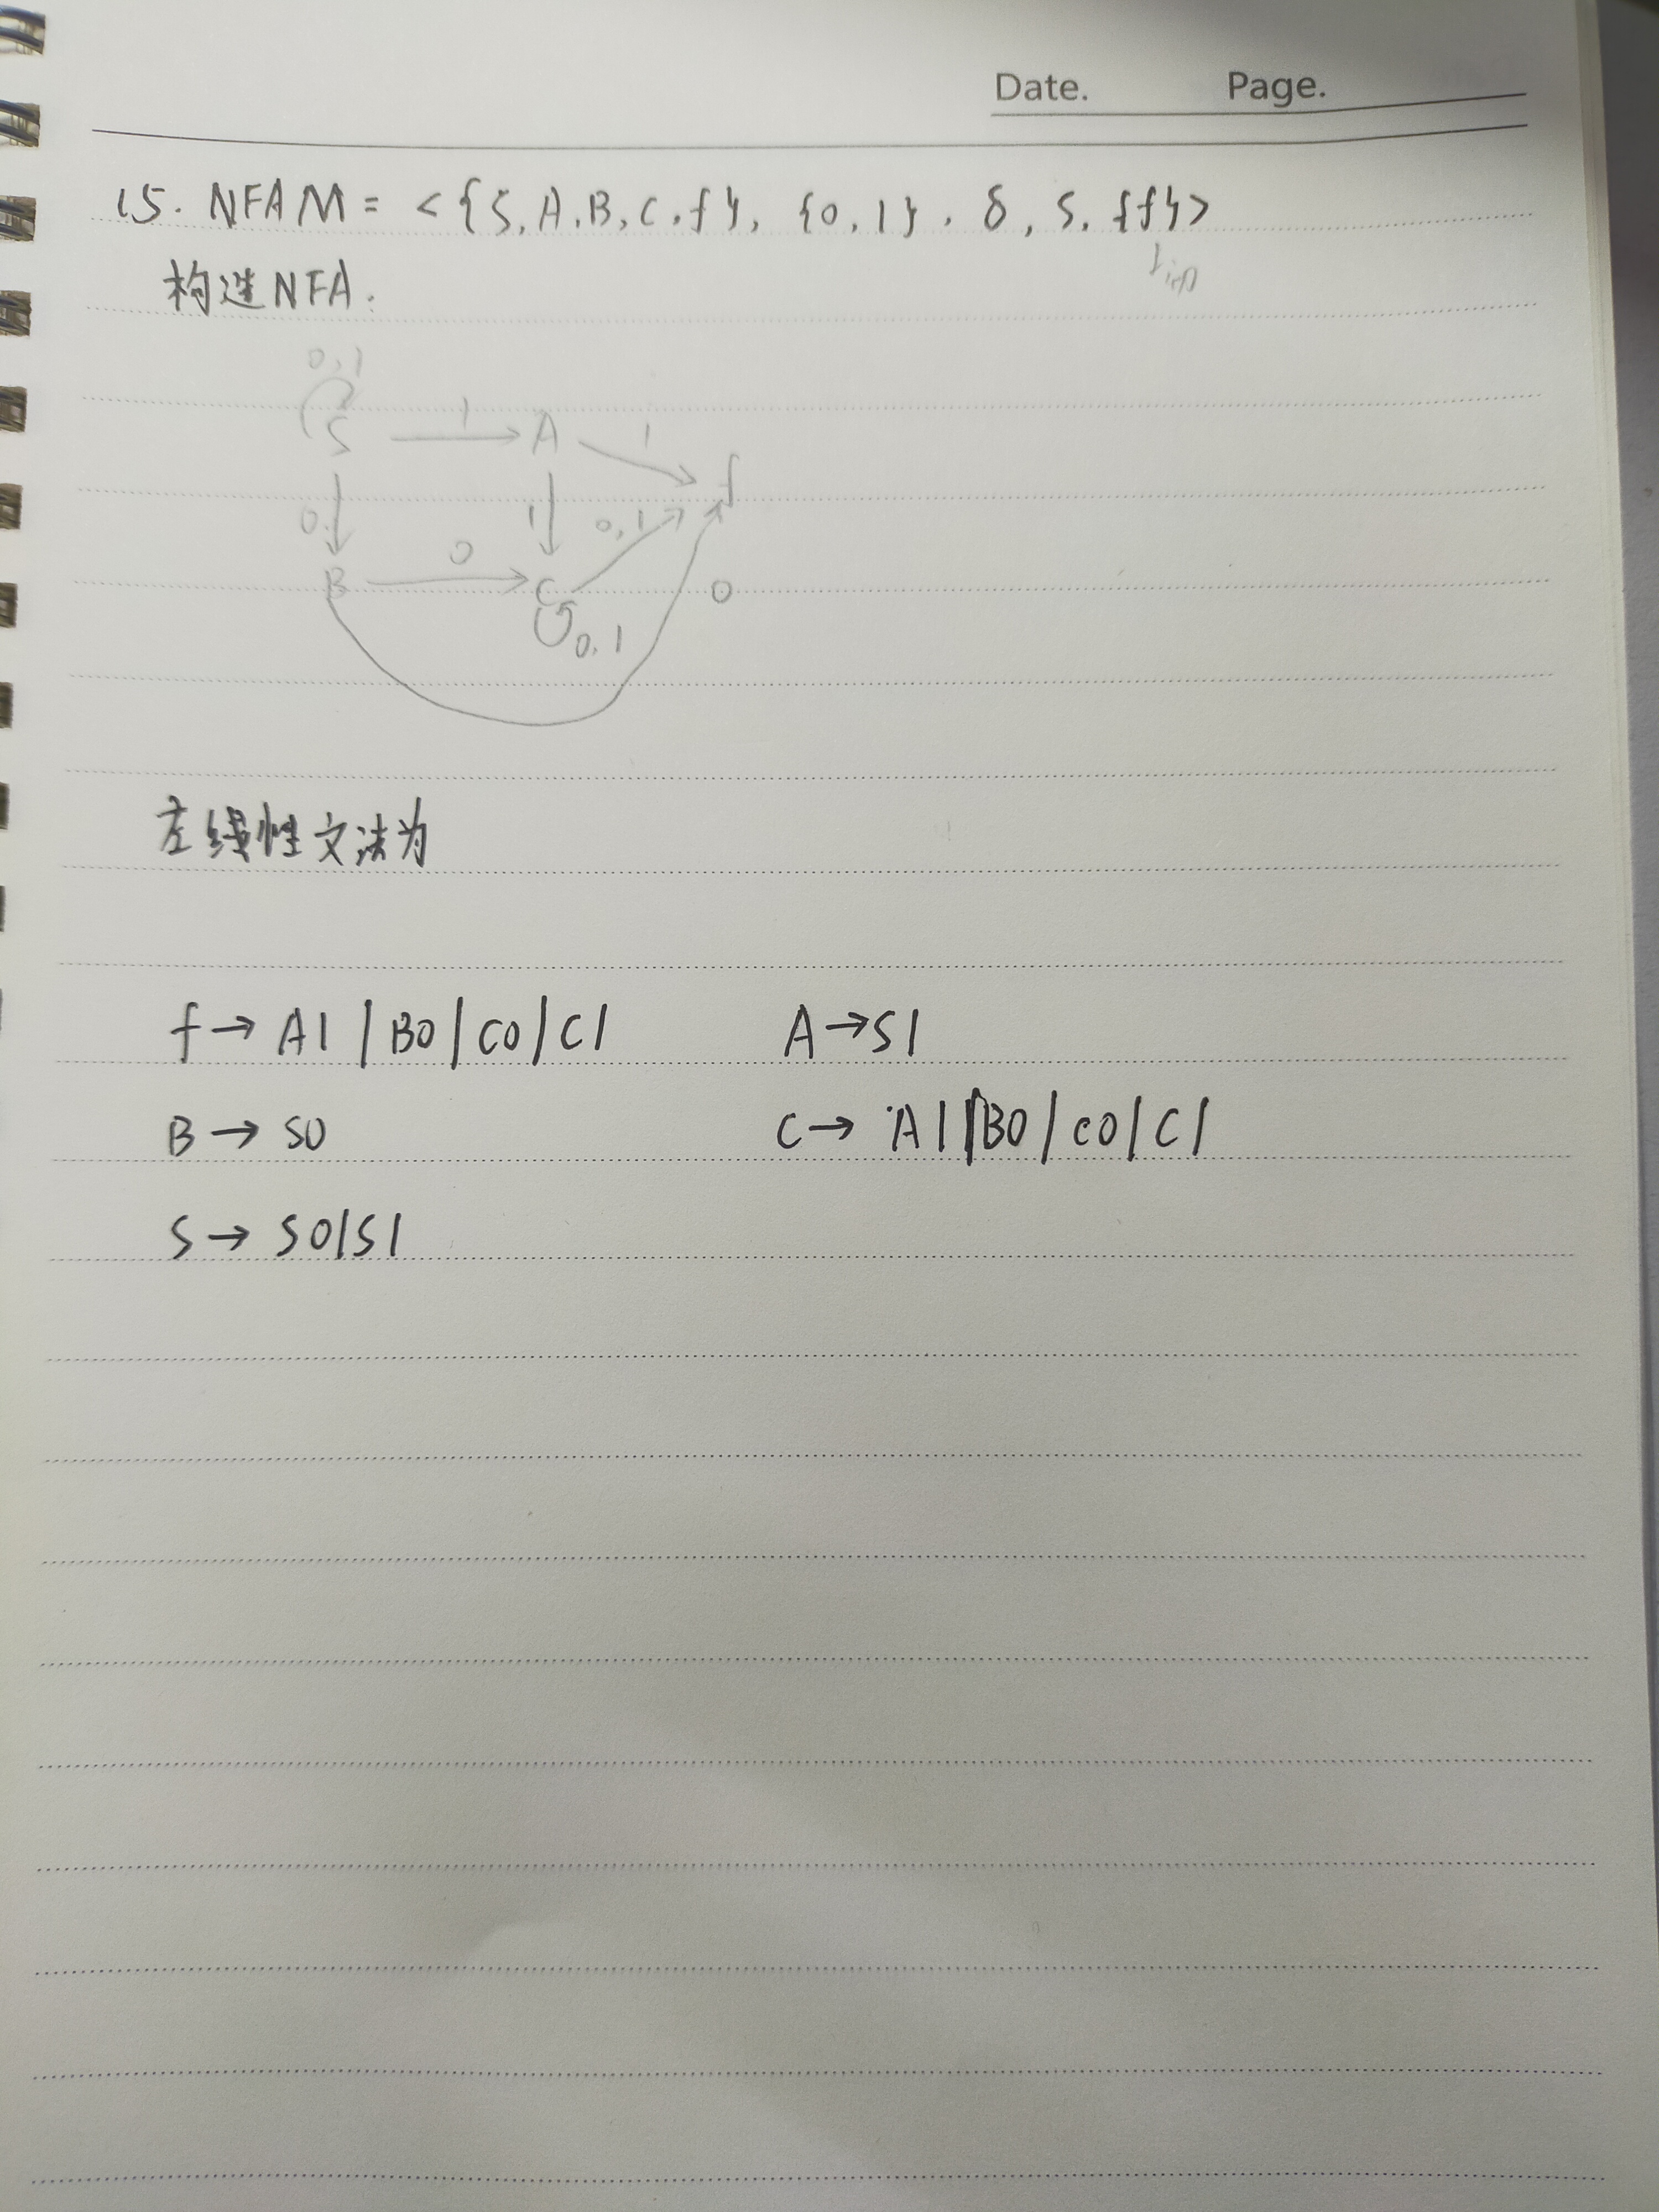 Date. Page.
15. NFA M = <{S, A, B, C, f}, {0, 1}, δ, S, {f}>
构造NFA:
0,1
S 1 A 1 f
0 1 0,1
B 0 C 0
0,1
左线性文法为
f → A1 | B0 | C0 | C1 A → S1
B → S0 C → A1 | B0 | C0 | C1
S → S0 | S1